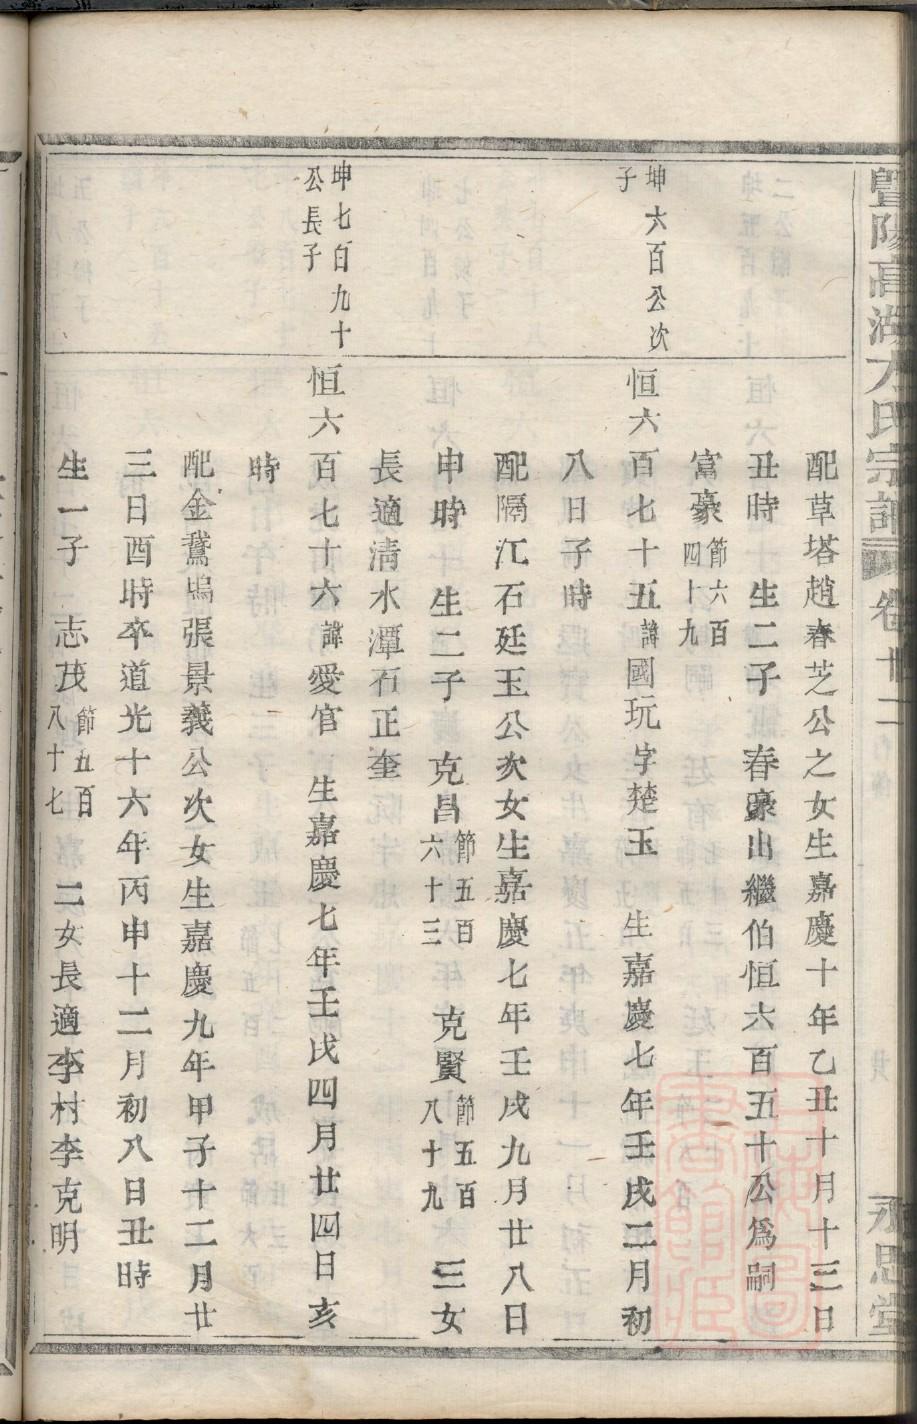 暨陽高湖方氏宗譜 卷廿二 永思堂
配草塔趙春芝公之女生嘉慶十年乙丑十月十三日
丑時 生二子 春豪出繼伯恒六百五十公爲嗣
富豪節六百四十九
坤六百公次子
恒六百七十五諱國玩字楚玉 生嘉慶七年壬戌二月初
八日子時
配隔江石廷玉公次女生嘉慶七年壬戌九月廿八日
申時 生二子 克昌節五百六十三 克賢節五百八十九 三女
長適清水潭石正奎
坤七百九十公長子
恒六百七十六諱愛官 生嘉慶七年壬戌四月廿四日亥
時
配金鵞塢張景義公次女生嘉慶九年甲子十二月廿
三日酉時卒道光十六年丙申十二月初八日丑時
生一子 志茂節五百八十七 二女長適李村李克明